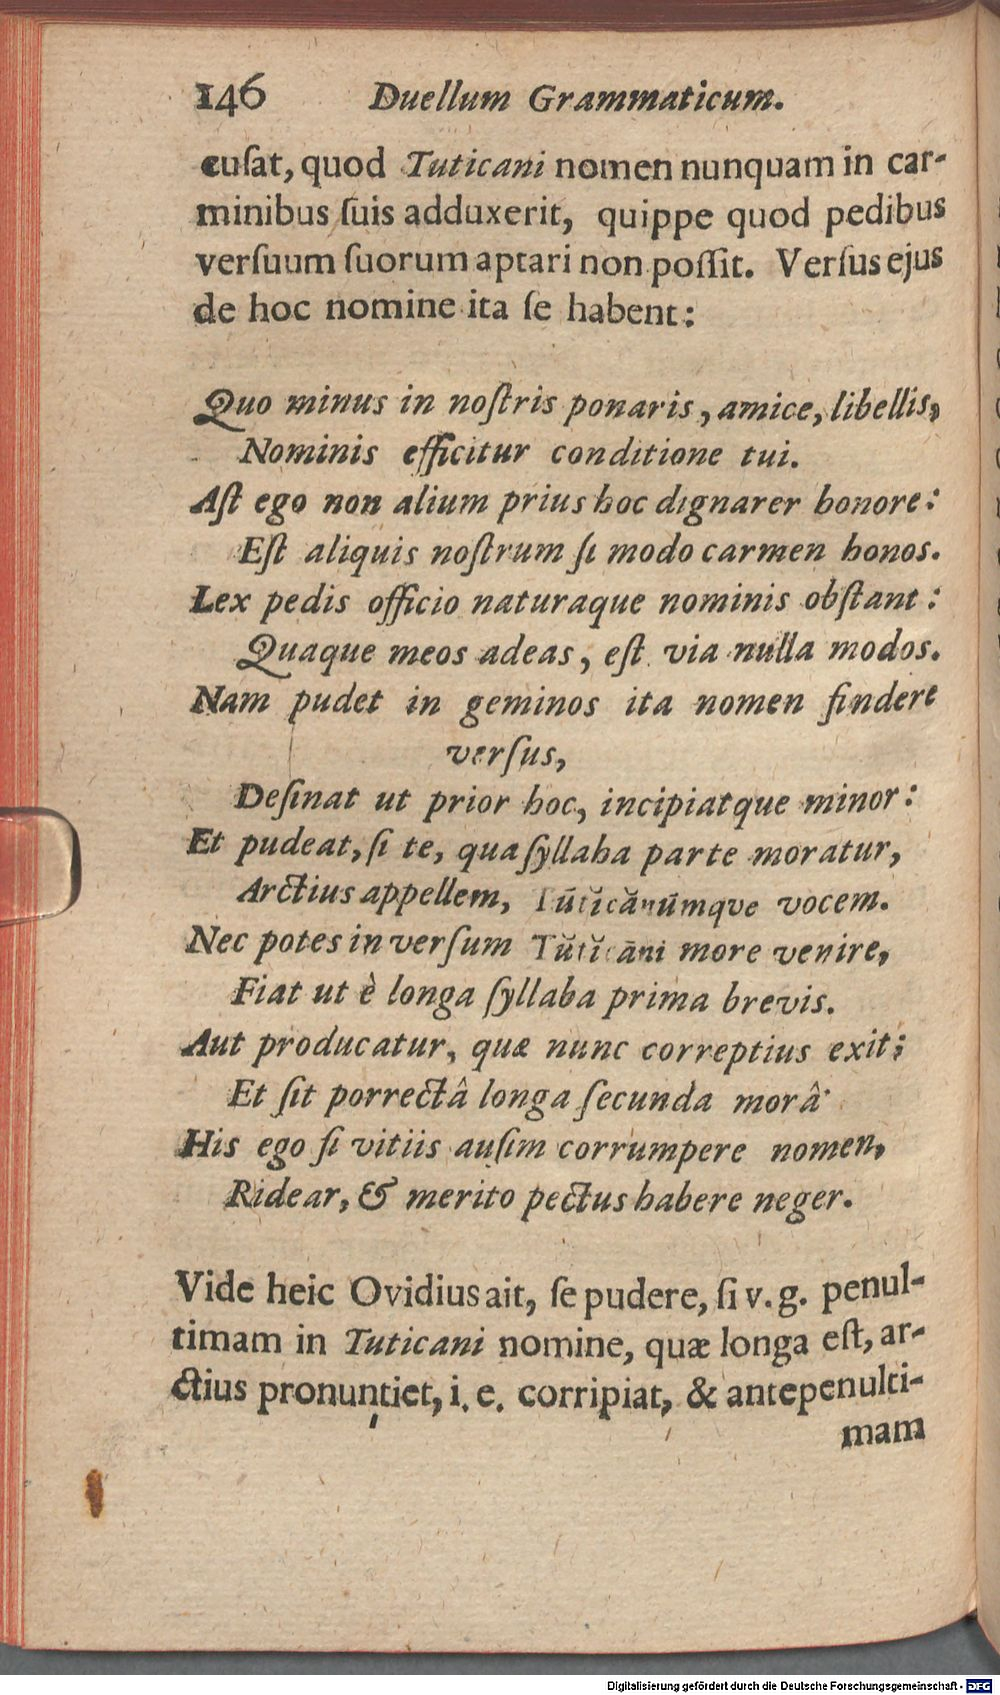 146 Duellum Grammaticum.
cuſat, quod Tuticani nomen nunquam in car-
minibus ſuis adduxerit, quippe quod pedibus
verſuum ſuorum aptari non poſſit. Verſus ejus
de hoc nomine ita ſe habent:
Quo minus in noſtris ponaris, amice, libellis,
Nominis efficitur conditione tui.
Aſt ego non alium prius hoc dignarer honore:
Eſt aliquis noſtrum ſi modo carmen honos.
Lex pedis officio naturaque nominis obſtant:
Quaque meos adeas, eſt via nulla modos.
Nam pudet in geminos ita nomen findere
verſus,
Deſinat ut prior hoc, incipiatque minor:
Et pudeat, ſi te, qua ſyllaba parte moratur,
Arctius appellem, Tūtĭcănūmqve vocem.
Nec potes in verſum Tŭtĭcāni more venire,
Fiat ut è longa ſyllaba prima brevis.
Aut producatur, quæ nunc correptius exit;
Et ſit porrectâ longa ſecunda morâ
His ego ſi vitiis auſim corrumpere nomen,
Ridear, & merito pectus habere neger.
Vide heic Ovidius ait, ſe pudere, ſi v. g. penul-
timam in Tuticani nomine, quæ longa eſt, ar-
ctius pronuntiet, i. e. corripiat, & antepenulti-
mam
Digitalisierung gefördert durch die Deutsche Forschungsgemeinschaft - DFG